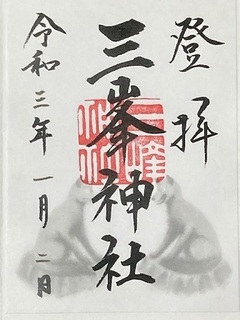 登拝
三峯神社
令和三年一月二日